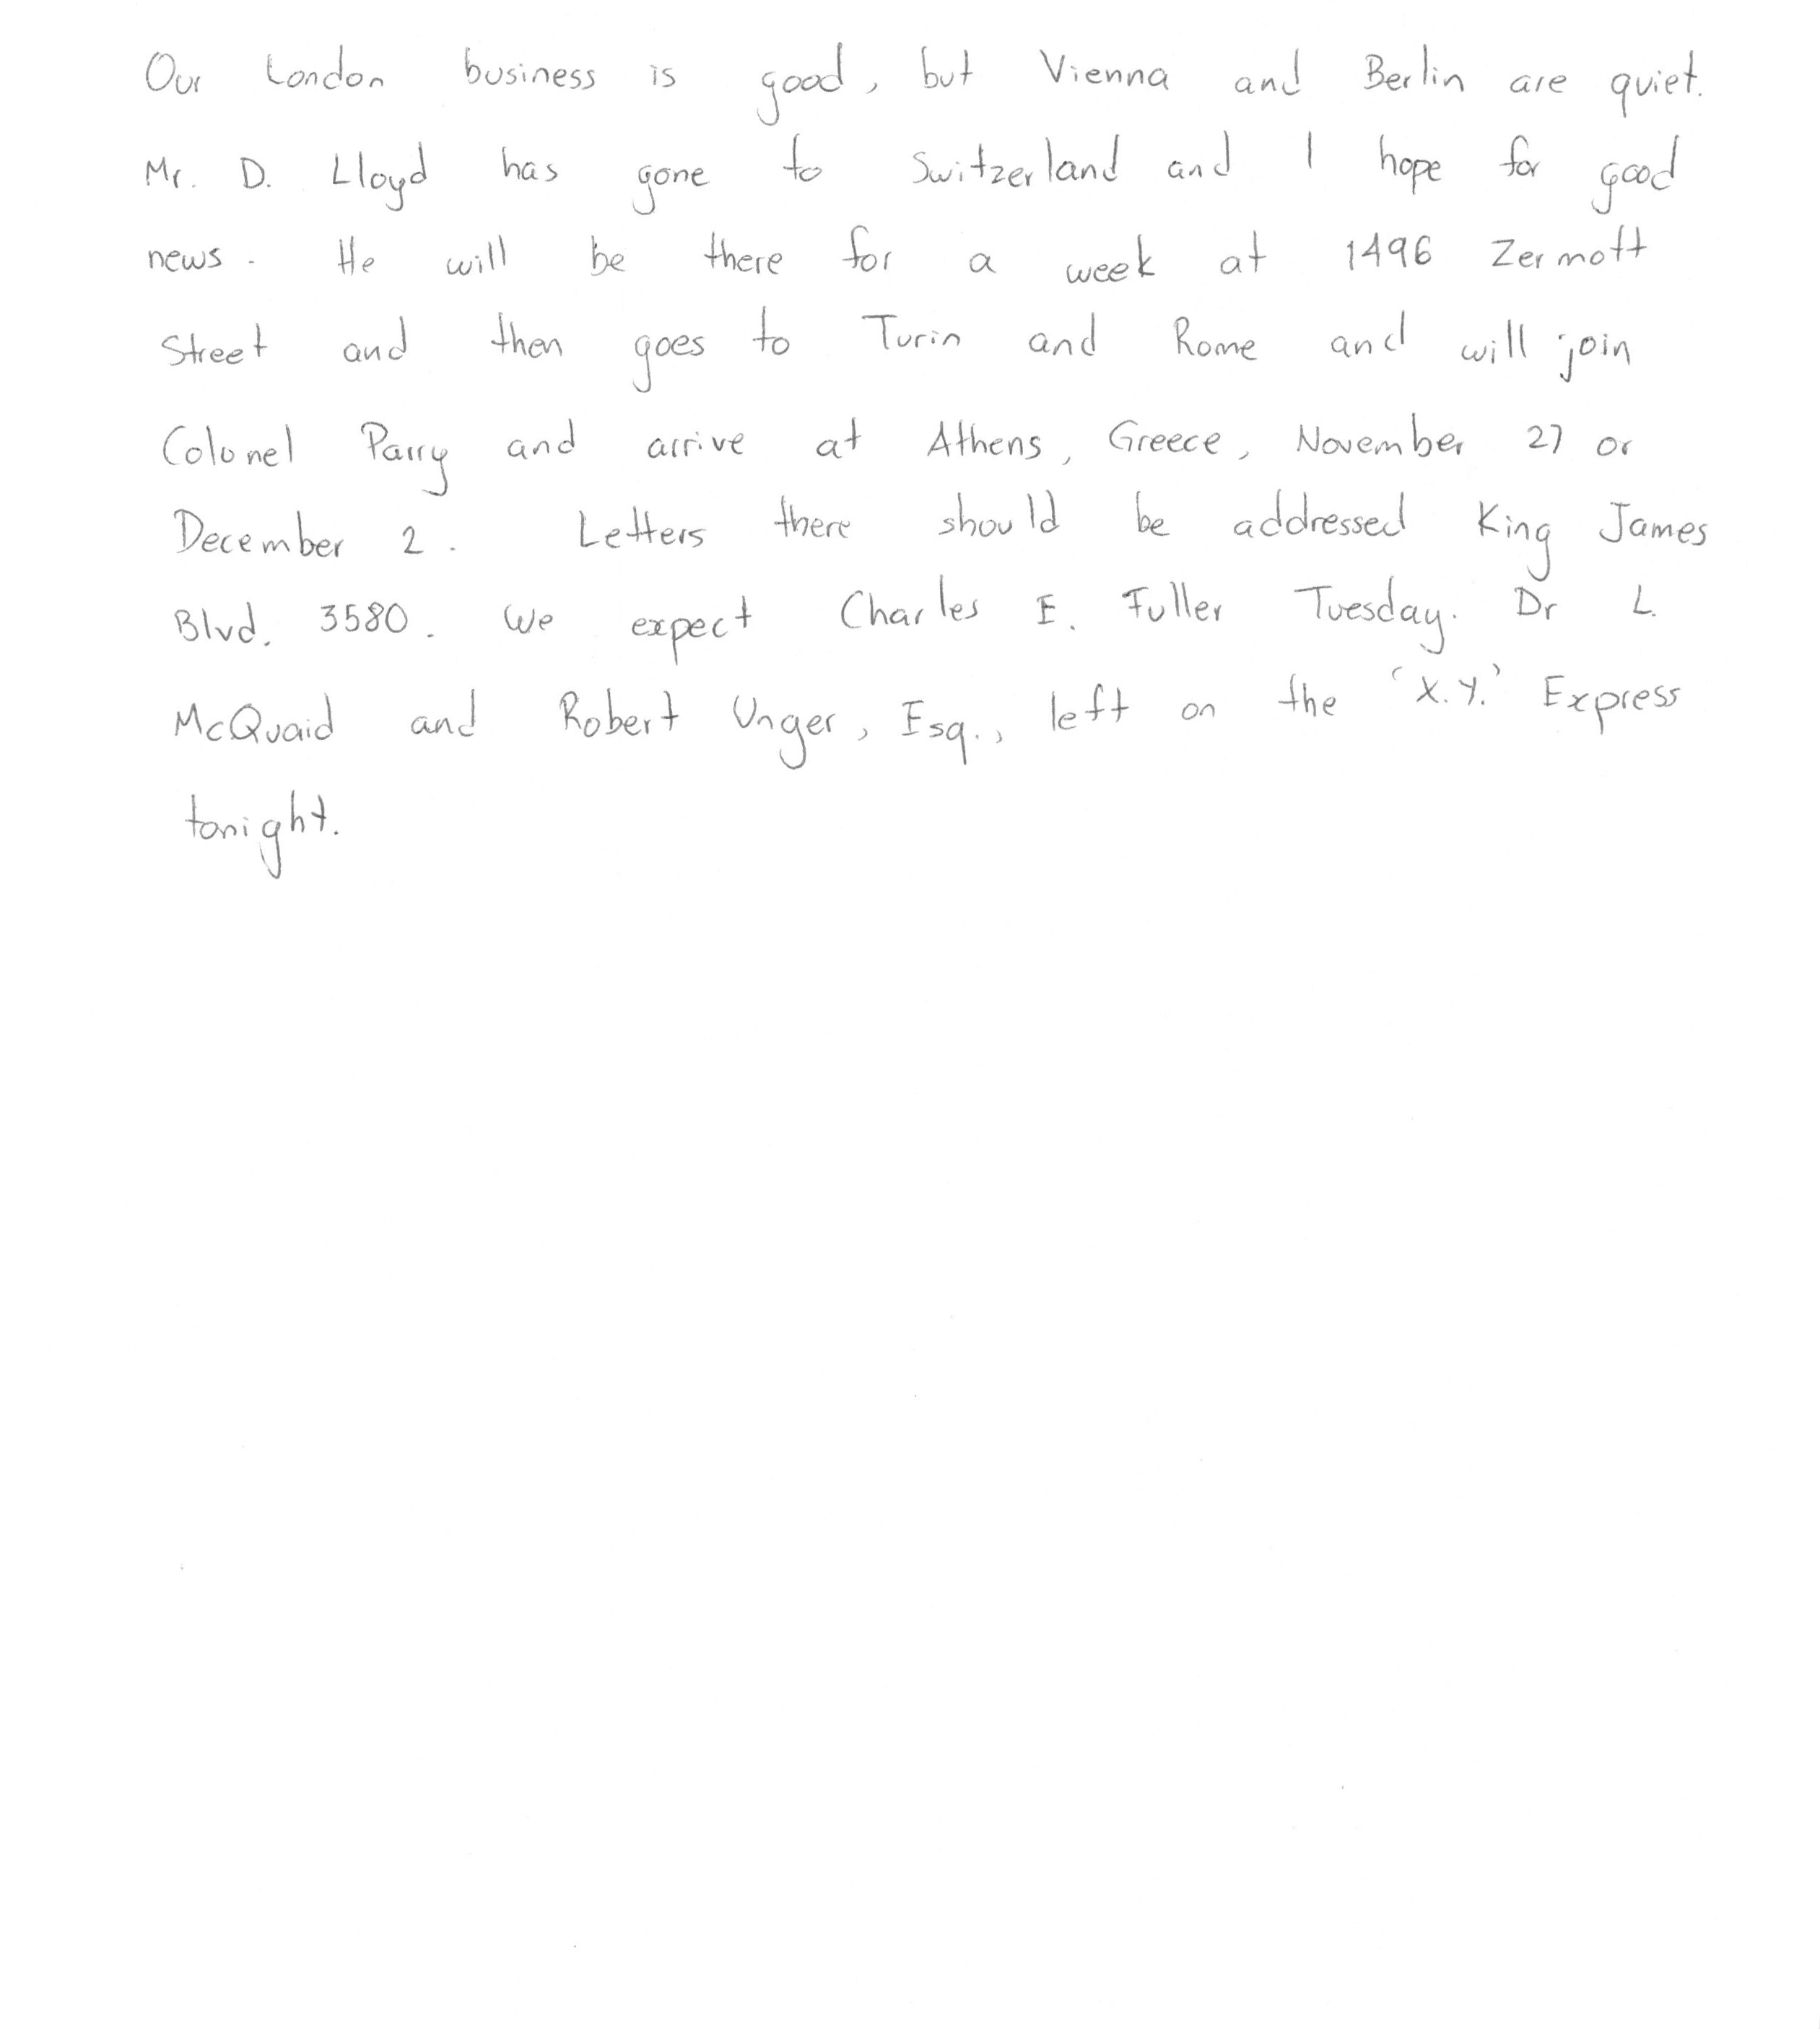 Our London business is good, but Vienna and Berlin are quiet.
Mr. D. Lloyd has gone to Switzerland and I hope for good
news. He will be there for a week at 1496 Zermott
Street and then goes to Turin and Rome and will join
Colonel Parry and arrive at Athens, Greece, November 27 or
December 2. Letters there should be addressed King James
Blvd. 3580. We expect Charles E. Fuller Tuesday. Dr L.
McQuaid and Robert Unger, Esq., left on the 'X.Y.' Express
tonight.